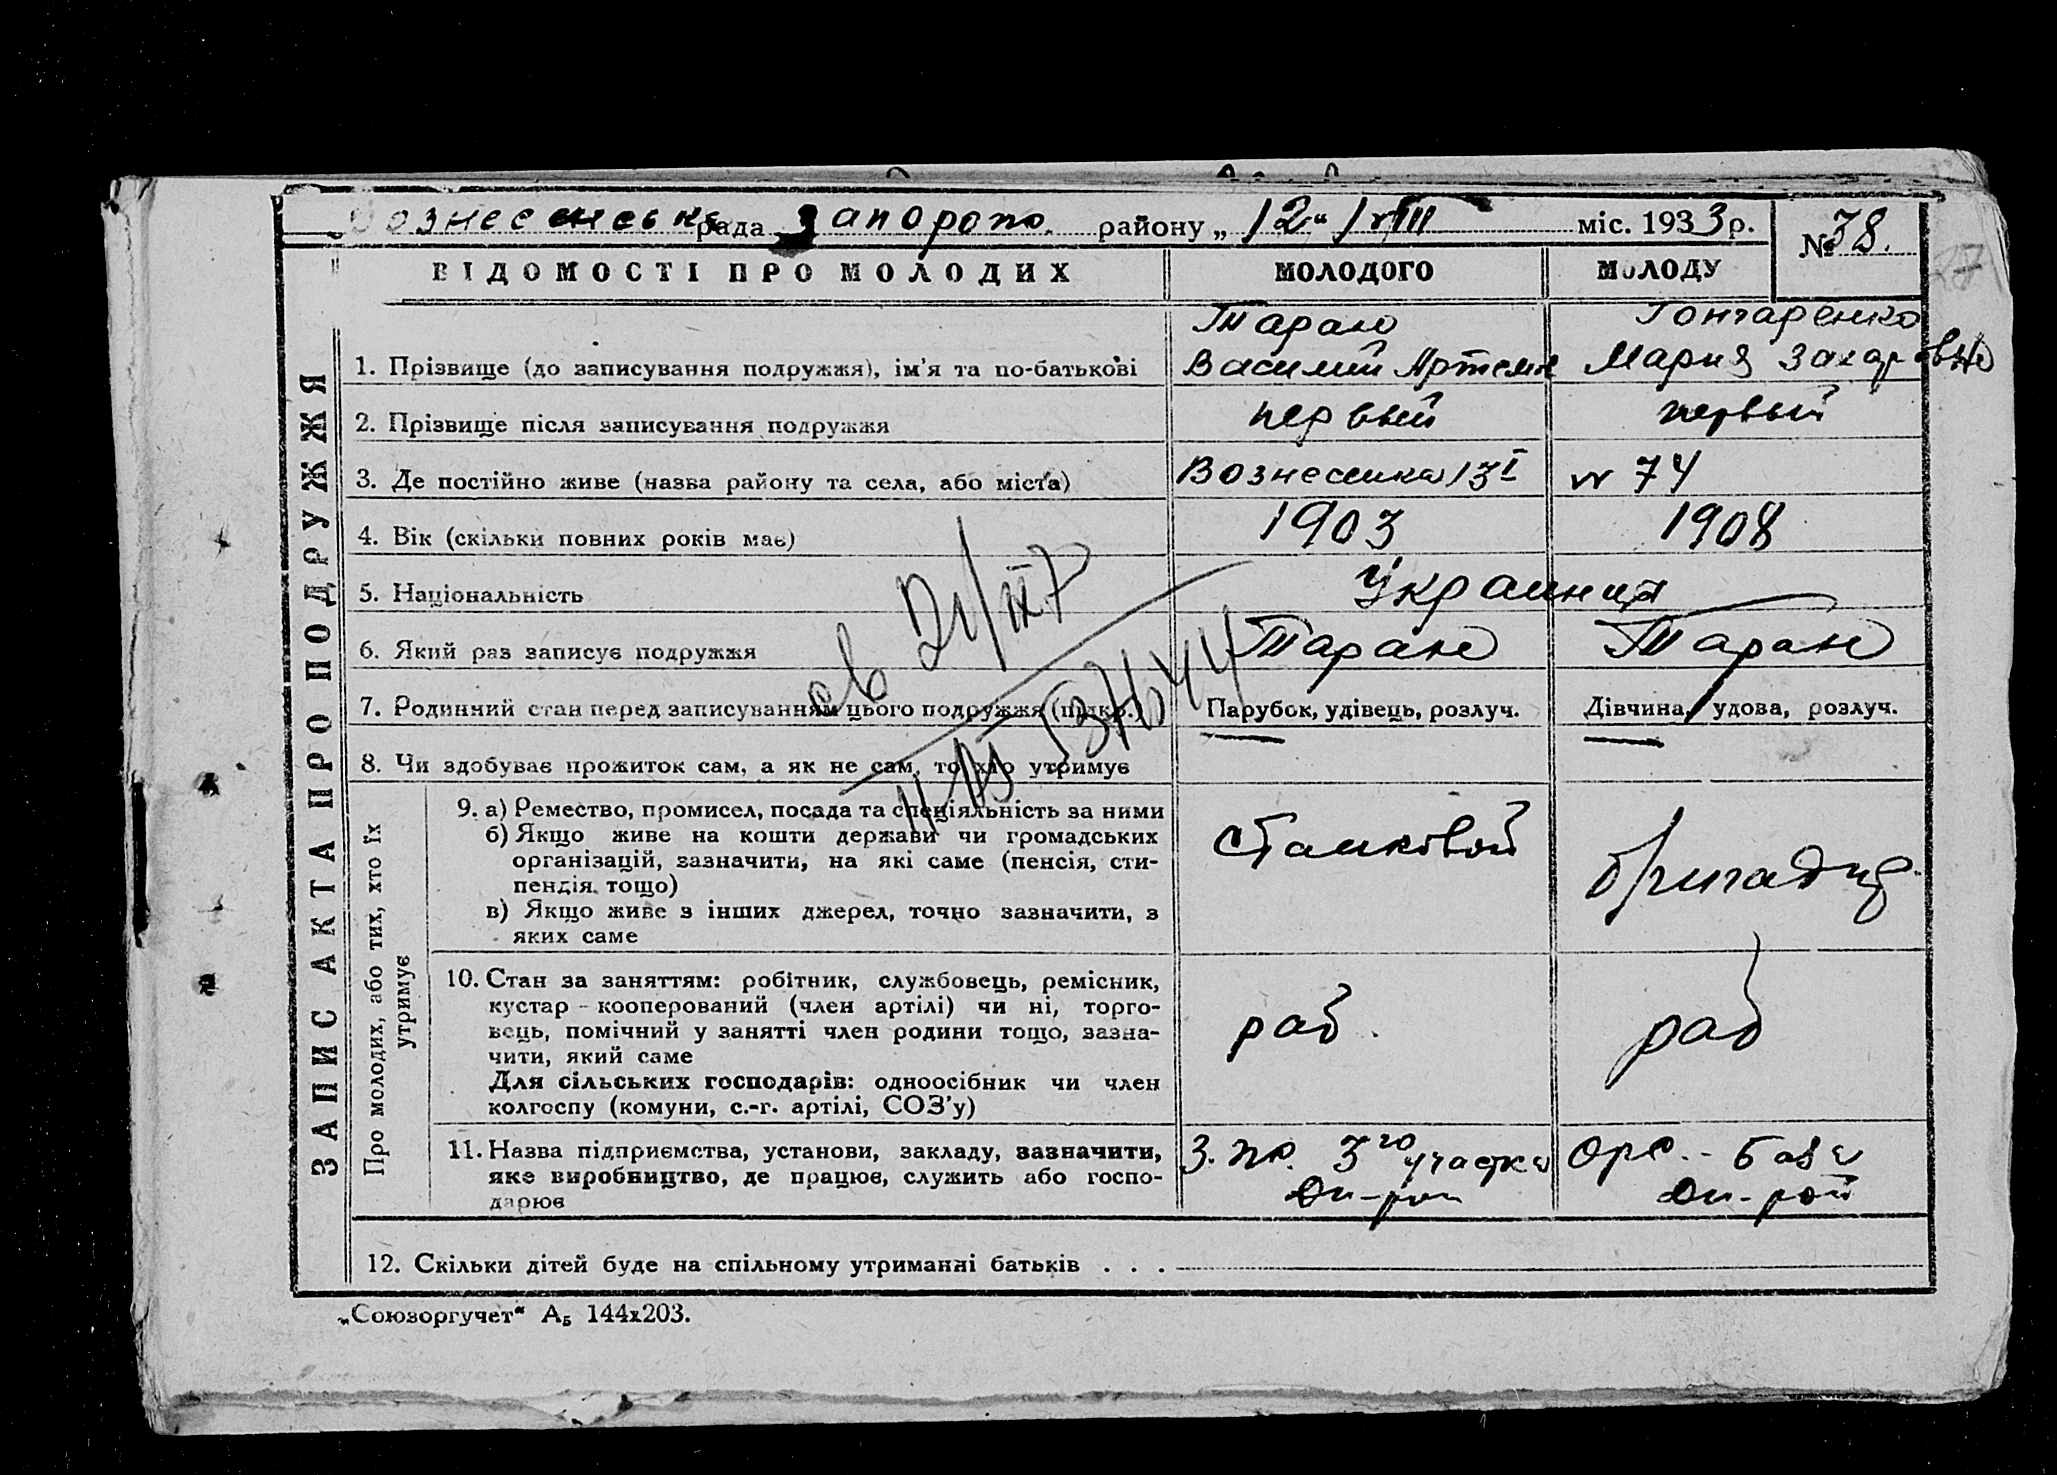 Вознесенська рада Запорож. району „12“ VIII міс. 1933 р.
№ 38.
27
ВІДОМОСТІ ПРО МОЛОДИХ МОЛОДОГО МОЛОДУ
ЗАПИС АКТА ПРО ПОДРУЖЖЯ
Таран Гончаренко
1. Прізвище (до записування подружжя), ім'я та по-батькові Василий Артемов Мария Захаровна
2. Прізвище після записування подружжя первый первый
3. Де постійно живе (назва району та села, або міста) Вознесенка 13 I № 74
4. Вік (скільки повних років має) 1903 1908
5. Національність Украинця
6. Який раз записує подружжя Таран Таран
7. Родинний стан перед записуванням цього подружжя (підкр.) Парубок, удівець, розлуч. Дівчина, удова, розлуч.
8. Чи здобуває прожиток сам, а як не сам, то хто утримує
Про молодих, або тих, хто їх
утримує
9. а) Ремество, промисел, посада та спеціяльність за ними
б) Якщо живе на кошти держави чи громадських
організацій, зазначити, на які саме (пенсія, сти-
пендія тощо)
в) Якщо живе з інших джерел, точно зазначити, з
яких саме
Становой
бригадир
10. Стан за заняттям: робітник, службовець, ремісник,
кустар – кооперований (член артілі) чи ні, торго-
вець, помічний у занятті член родини тощо, зазна-
чити, який саме
Для сільських господарів: одноосібник чи член
колгоспу (комуни, с.-г. артілі, СОЗ'у)
раб раб
11. Назва підприємства, установи, закладу, зазначити, З. 3го участка Орс. - база
яке виробництво, де працює, служить або госпо- Дн-рой Дн-рой
дарює
12. Скільки дітей буде на спільному утриманні батьків . . .
„Союзоргучет“ А₅ 144х203.